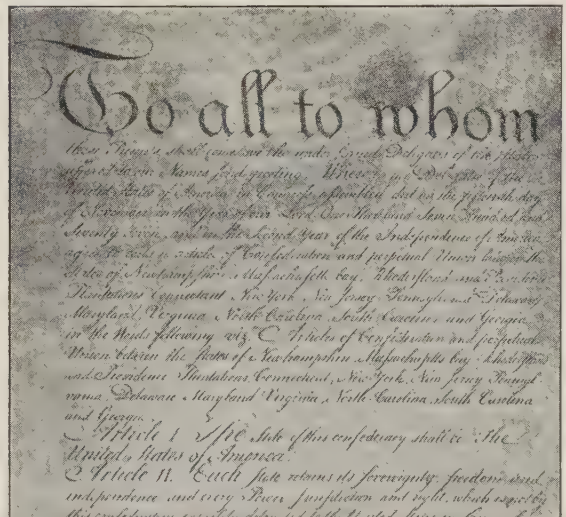 To all to whom
these Presents shall come, we the under signed Delegates of the States
affixed to our Names send greeting. Whereas the Delegates of the
United States of America in Congress assembled did on the fifteenth day
of November in the Year of our Lord One Thousand Seven Hundred and
Seventy seven, and in the Second Year of the Independence of America
agree to certain articles of Confederation and perpetual Union between the
States of Newhampshire, Massachusetts bay, Rhodeisland and Providence
Plantations Connecticut New York New Jersey Pennsylvania Delaware
Maryland, Virginia North Carolina South Carolina and Georgia
in the Words following viz. Articles of Confederation and perpetual
Union between the States of Newhampshire Massachusetts bay Rhodeisland
and Providence Plantations, Connecticut, New York, New Jersey Pennsyl
vania, Delaware Maryland Virginia, North Carolina South Carolina
and Georgia.
Article I The Stile of this confederacy shall be The
United States of America.
Article II. Each state retains its sovereignty, freedom and
independence and every Power Jurisdiction and right, which is not by